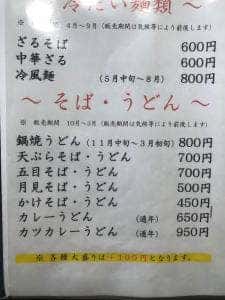 冷たい麺類
※ 4月～9月(販売期間は気候等により前後します)
ざるそば 600円
中華ざる 600円
冷風麺 (5月中旬～8月) 800円
～ そば・うどん ～
※ 販売期間 10月～3月(販売期間は気候等により前後します)
鍋焼うどん(11月中旬～3月初旬)800円
天ぷらそば・うどん 700円
五目そば・うどん 700円
月見そば・うどん 500円
かけそば・うどん 450円
カレーうどん (通年) 650円
カツカレーうどん (通年) 950円
※ 各種大盛りは+100円となります。